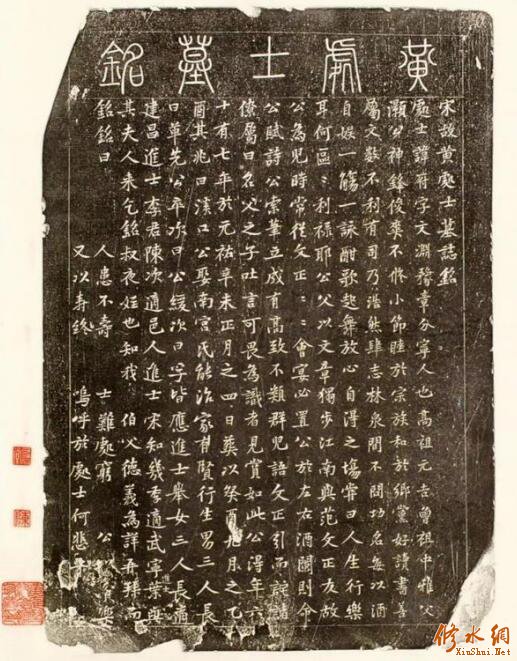 黃處士墓銘
宋故黃處士墓誌銘
處士諱府字文淵豫章分寧人也高祖元吉曾祖中雅父
灝公神鋒俊異不修小節睦於宗族和於鄉黨好讀書善
屬文數不利有司乃浩然肆志林泉間不問功名每以酒
自娛一觴一詠酣歌起舞放心自得之場嘗曰人生行樂
耳何區〻利祿耶公父以文章獨步江南與范文正友故
公為兒時常從文正〻〻會宴必置公於左右酒闌則令
公賦詩公索筆立成有高致不類群兒語文正引而詫諸
僚屬曰名父之子吐言可畏為識者見賞如此公得年六
十有七年於元祐辛未正月之四日葬以癸酉九月之乙
酉其兆曰溪口公娶南宮氏能治家有賢行生男三人長
曰革先公卒次曰公緩次曰孚皆應進士舉女三人長適
建昌進士李君陳次適邑人進士宋知幾季適武寧葉與
其夫人來乞銘叔夜姪也知我 伯父德義為詳再拜而
銘銘曰 人患不壽 士難處窮 公 樂
又以壽終 嗚呼於處士何悲
修水網
XiuShui.Net